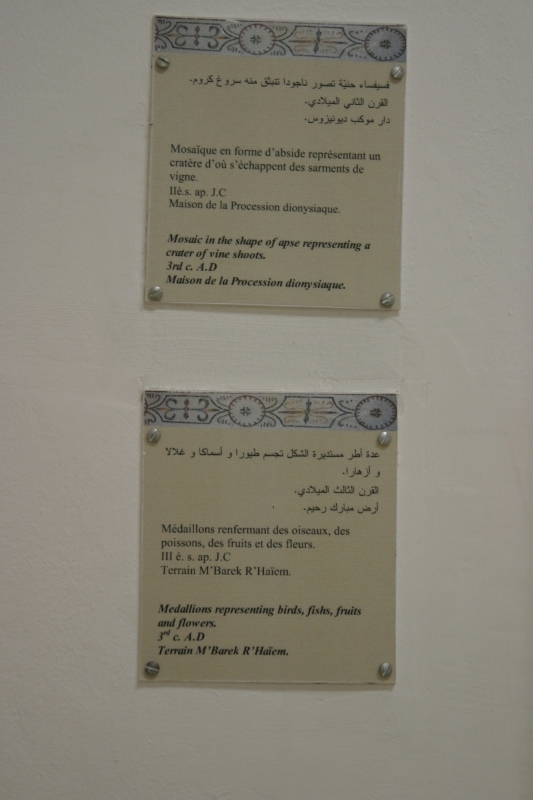 فسيفساء حنيّة تصور ناجودا تنبثق منه سروغ كروم.
القرن الثاني الميلادي.
دار موكب ديونيزوس.
Mosaïque en forme d'abside représentant un
cratère d'où s'échappent des sarments de
vigne.
IIè.s. ap. J.C
Maison de la Procession dionysiaque.
Mosaic in the shape of apse representing a
crater of vine shoots.
3rd c. A.D
Maison de la Procession dionysiaque.
عدة أطر مستديرة الشكل تجسم طيورا و أسماكا و غلالا
و أزهارا.
القرن الثالث الميلادي.
أرض مبارك رحيم.
Médaillons renfermant des oiseaux, des
poissons, des fruits et des fleurs.
III è. s. ap. J.C
Terrain M'Barek R'Haïem.
Medallions representing birds, fishs, fruits
and flowers.
3rd c. A.D
Terrain M'Barek R'Haïem.